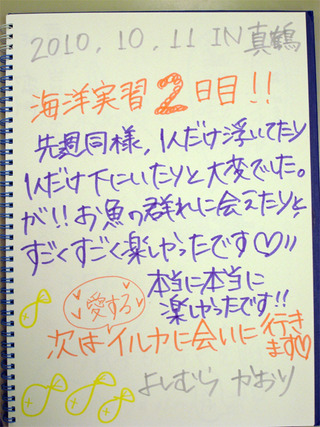 2010.10.11 IN真鶴
海洋実習2日目!!
先週同様,1人だけ浮いてたり
1人だけ下にいたりと大変でした。
が!!お魚の群れに会えたりと、
すごくすごく楽しかったです♡〃
本当に本当に
楽しかったです!!
愛する
次はイルカに会いに行き
ます♡
よしむら かおり